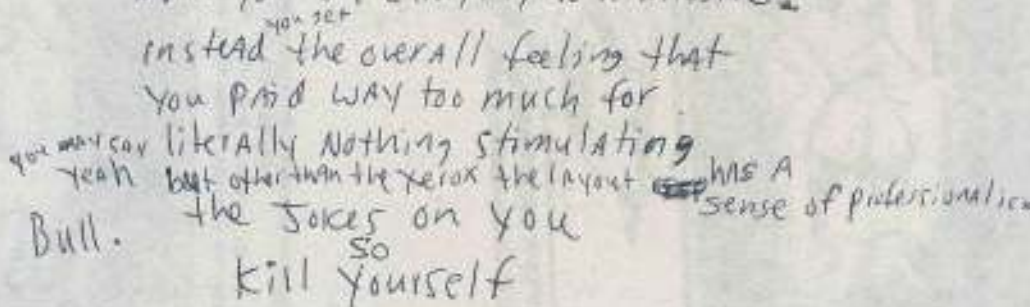 you get
instead the overall feeling that
you paid way too much for
literally nothing stimulating
you may say yeah but other than the xerox the layout has a
sense of professionalism
Bull. the jokes on you
so
kill yourself